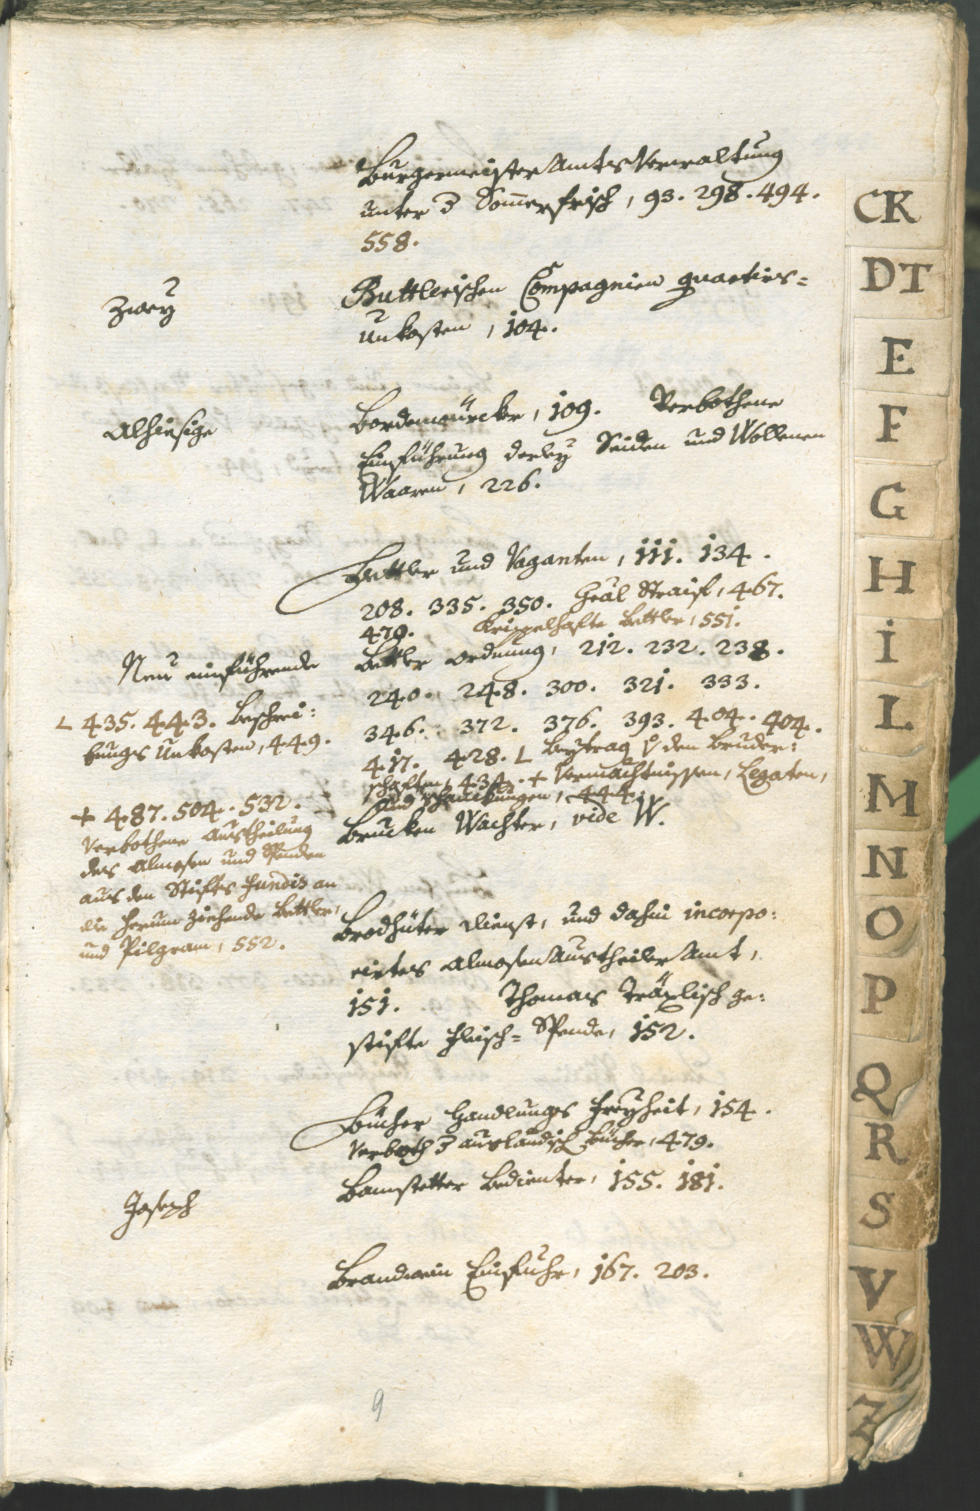 Burgermeister Amts Verwaltung
unter d Sommerfrisch, 93. 298. 494.
558.
Zwey
Buttlerischen Compagnien quartirs=
Unkosten, 104.
Alhiesige
Bordenwürcker, 109. Verbothene
Einführung derley Seiden und Wollenen
Waaren, 226.
Bettler und Vaganten, 111. 134.
208. 335. 350. Straiff, 467.
479. Krippelhafte Bettler, 551.
Neu einführende
Bettler ordnung, 212. 232. 238.
240. 248. 300. 321. 333.
346. 372. 376. 393. 404. 404.
417. 428. L Beytrag den Bruder:
schaften, 434. + Vermächtnissen, Legaten,
und Schenckungen, 444.
L 435. 443. Beschrei:
bungs Unkosten, 449.
+ 487. 504. 532.
Verbothene Austheilung
des Almosen und Spenden
aus den Stiffts fundis an
die herum ziehende Bettler,
und Pilgram, 552.
Brucken Wachter, vide W.
Brodhüter dienst, und dahin incorpo:
rirtes Almosen Austheiler Amt,
151. Thomas Träxlisch ge:
stifte Fleisch= Spende, 152.
Bücher Handlungs Freyheit, 154.
Verboth d ausländisch Bücher, 479.
Joseph
Bamstetter Bedienter, 155. 181.
Brandwein Einfuhr, 167. 203.
9
CK
DT
E
F
G
H
I
L
M
N
O
P
Q
R
S
V
W
Z